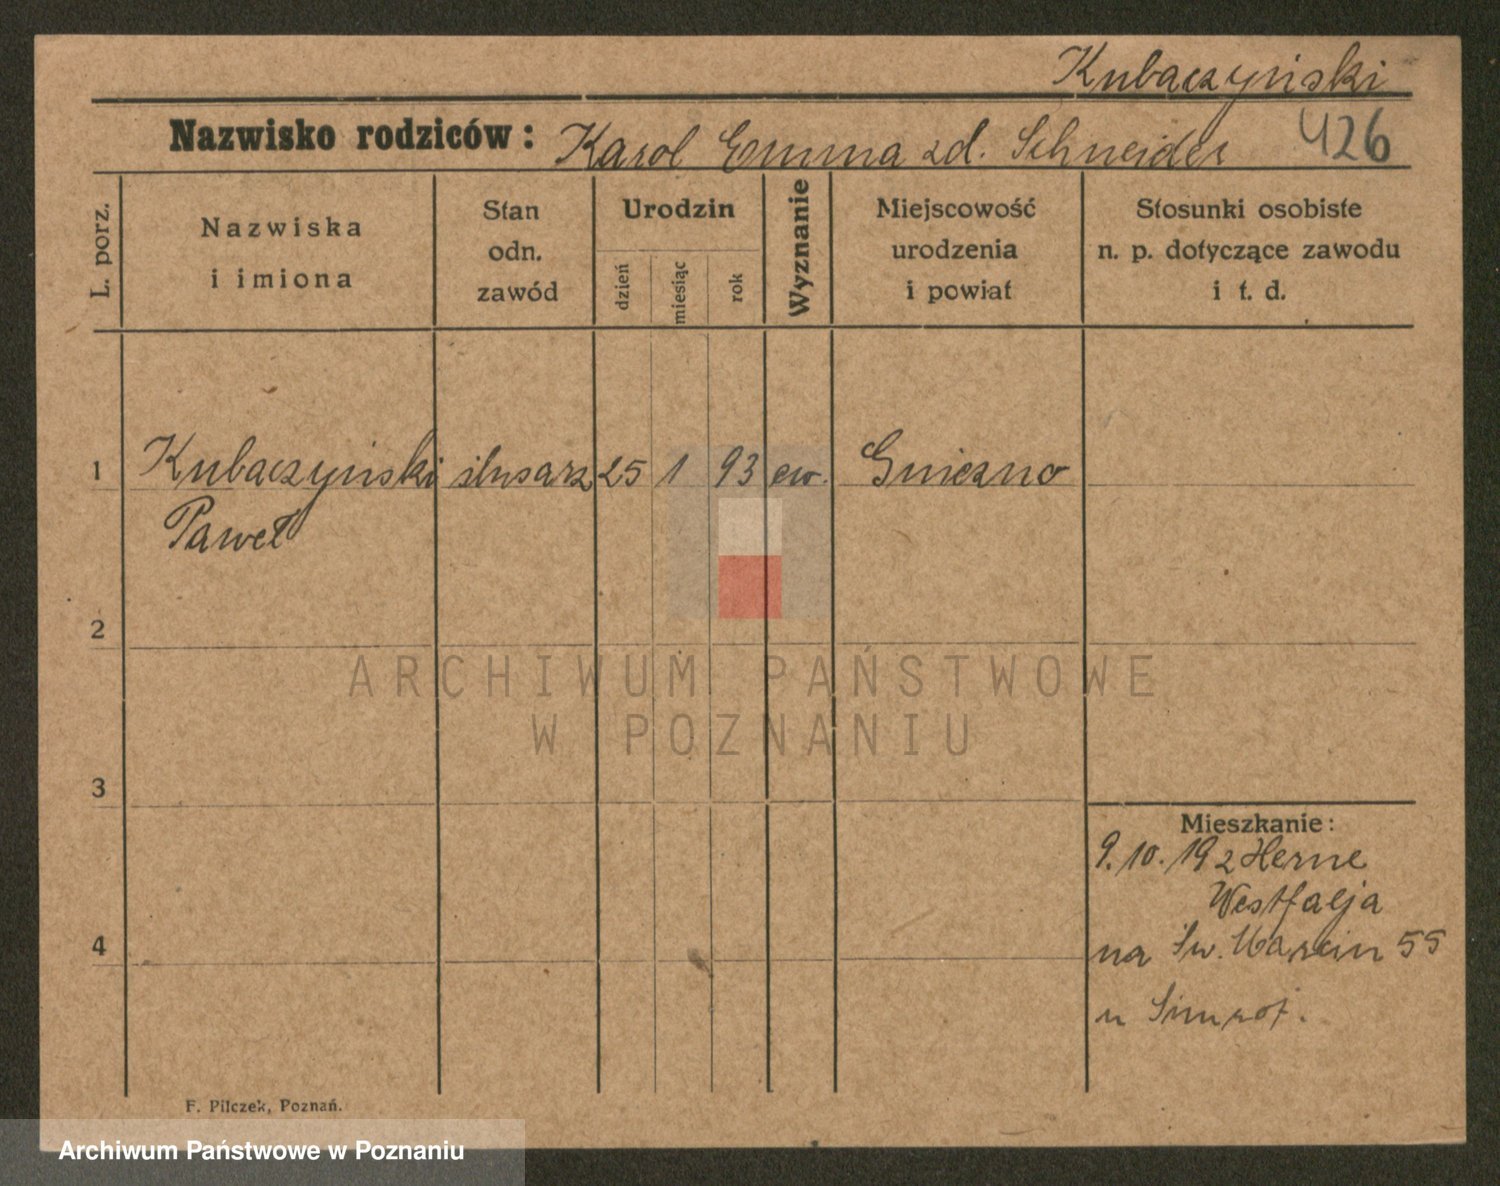 Kubaczyński
Nazwisko rodziców: Karol Emma zd. Schneider 426
L. porz.
Nazwiska
i imiona
Stan
odn.
zawód
Urodzin
dzień
miesiąc
rok
Wyznanie
Miejscowość
urodzenia
i powiat
Stosunki osobiste
n. p. dotyczące zawodu
i t. d.
1 Kubaczyński ślusarz 25 1 93 ew. Gniezno
Paweł
2
ARCHIWUM PAŃSTWOWE
W POZNANIU
3
Mieszkanie:
9.10.192 Herne
Westfalja
4
na Św. Marcin 55
u
F. Pilczek, Poznań.
Archiwum Państwowe w Poznaniu